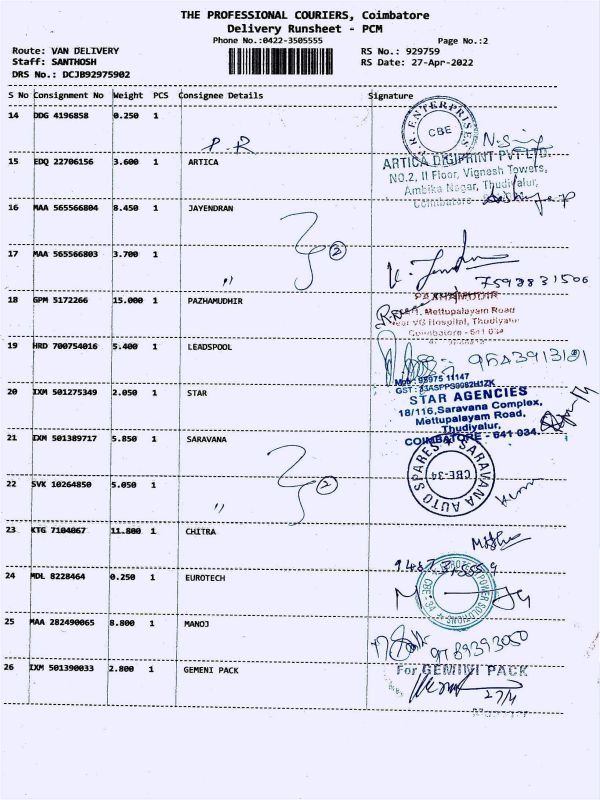 THE PROFESSIONAL COURIERS, Coimbatore
Delivery Runsheet - PCM
Phone No.:0422-3505555
Page No.:2
Route: VAN DELIVERY
RS No.: 929759
Staff: SANTHOSH
RS Date: 27-Apr-2022
DRS No.: DCJB92975902
S No Consignment No Weight PCS Consignee Details Signature
14 DDG 4196858 0.250 1
P.R
R. ENTERPRISES
CBE
15 EDQ 22706156 3.600 1 ARTICA
ARTICA DIGIPRINT PVT LTD.
NO.2, II Floor, Vignesh Towers,
Ambika Nagar, Thudiyalur,
Coimbatore
16 MAA 565566804 8.450 1 JAYENDRAN
2
17 MAA 565566803 3.700 1 "
7598831506
18 GPM 5172266 15.000 1 PAZHAMUDHIR
PAZHAMUDIR
Mettupalayam Road
Near VG Hospital, Thudiyalur
Coimbatore - 641 034
19 HRD 700754016 5.400 1 LEADSPOOL
20 IXM 501275349 2.050 1 STAR
Mob : 98975 11147
STAR AGENCIES
18/116, Saravana Complex,
Mettupalayam Road,
Thudiyalur,
COIMBATORE - 641 034.
21 IXM 501389717 5.850 1 SARAVANA
SARAVANA AUTO SPARES
CBE-34
2
22 SVK 10264850 5.050 1 "
23 KTG 7104067 11.800 1 CHITRA
24 MDL 8228464 0.250 1 EUROTECH
POWER SOLUTIONS
25 MAA 282490065 8.800 1 MANOJ
9789393050
26 IXM 501390033 2.800 1 GEMENI PACK
For GEMINI PACK
27/4